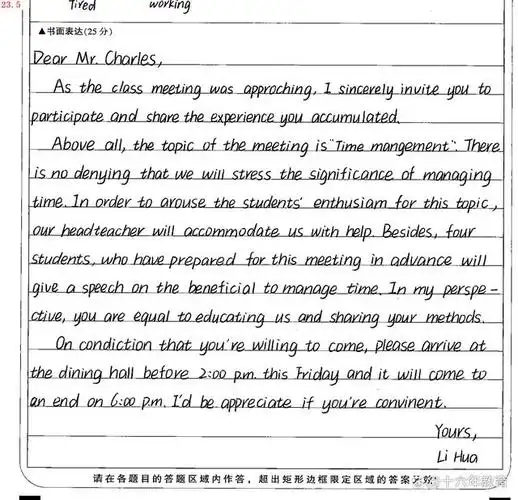 23.5 Tired working
▲书面表达(25分)
Dear Mr. Charles,
As the class meeting was approching, I sincerely invite you to
participate and share the experience you accumulated.
Above all, the topic of the meeting is "Time mangement". There
is no denying that we will stress the significance of managing
time. In order to arouse the students' enthusiam for this topic,
our headteacher will accommodate us with help. Besides, four
students, who have prepared for this meeting in advance will
give a speech on the beneficial to manage time. In my perspe-
ctive, you are equal to educating us and sharing your methods.
On condiction that you're willing to come, please arrive at
the dining hall before 2:00 p.m. this Friday and it will come to
an end on 6:00 p.m. I'd be appreciate if you're convinent.
Yours,
Li Hua
请在各题目的答题区域内作答，超出矩形边框限定区域的答案无效